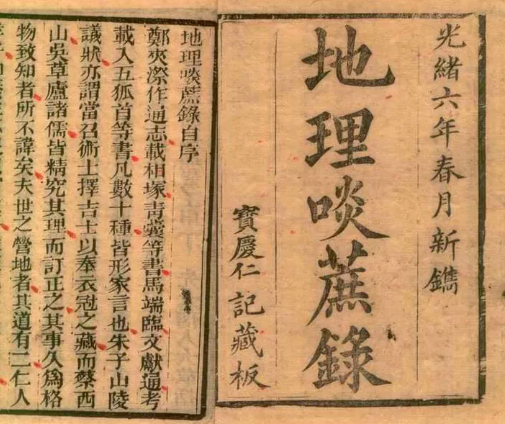 光緒六年春月新鐫
地理啖蔗錄
寳慶仁記藏板
地理啖蔗錄自序
鄭夾漈作通志載相塚青囊等書馬端臨文獻通考
載入五狐首等書凡數十種皆形家言也朱子山陵
議狀亦謂當召術士擇吉土以奉衣冠之藏而蔡西
山吳草廬諸儒皆精究其理而訂正之其事久為格
物致知者所不諱矣夫世之營地者其道有二仁人